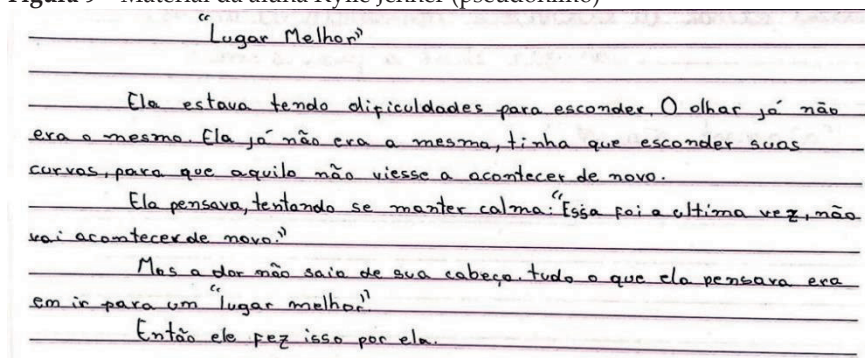 Figura 9 – Material da aluna Kylie Jenner (pseudônimo)
“Lugar Melhor”
Ela estava tendo dificuldades para esconder. O olhar já não
era o mesmo. Ela já não era a mesma, tinha que esconder suas
curvas, para que aquilo não viesse a acontecer de novo.
Ela pensava, tentando se manter calma: “Essa foi a ultima vez, não
vai acomtecer de novo.”
Mas a dor não saia de sua cabeça. tudo o que ela pensava era
em ir para um “lugar melhor”
Então ele fez isso por ela.